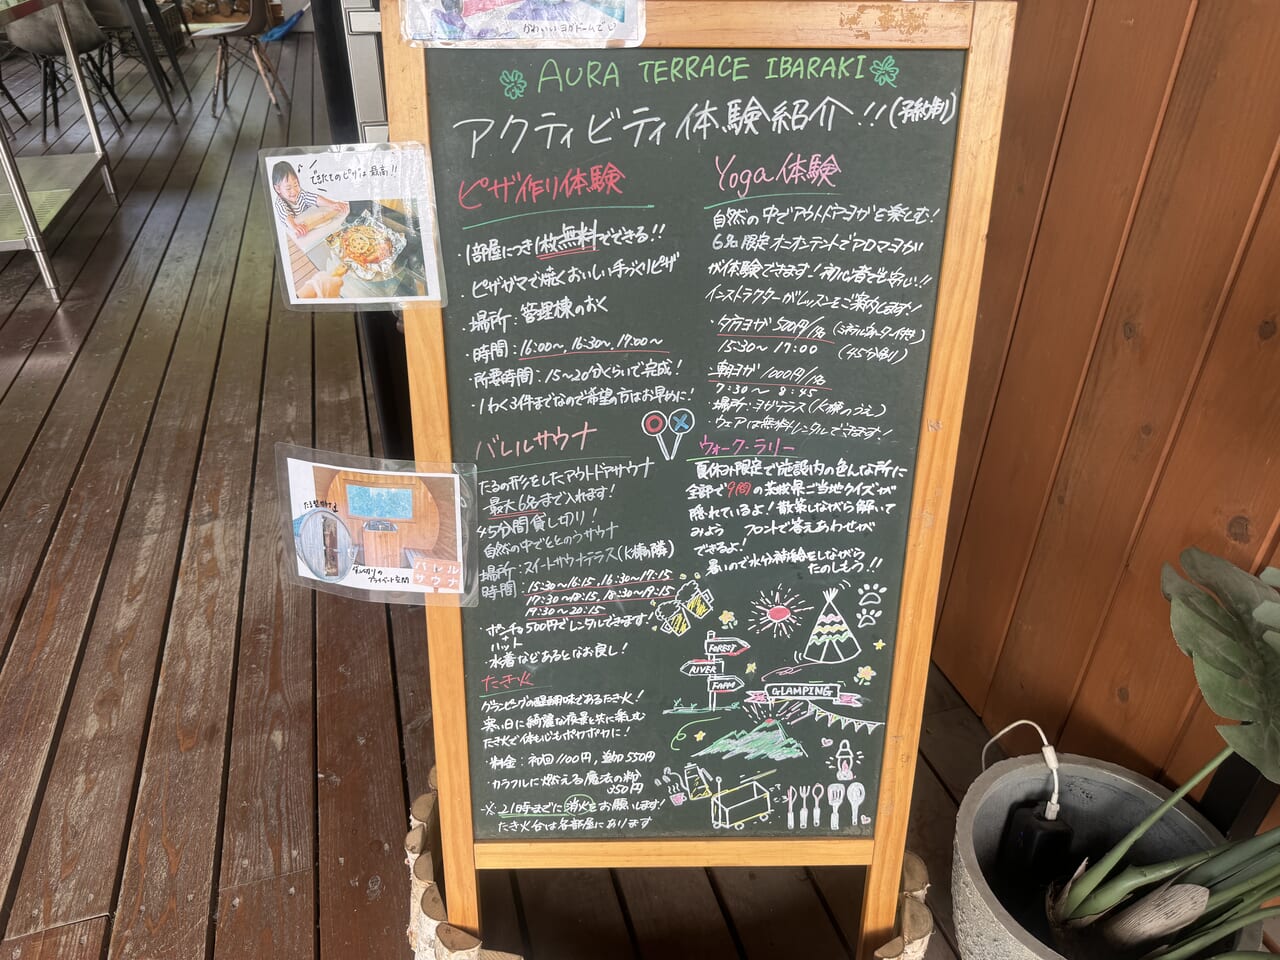 かわいいヨガドームで
AURA TERRACE IBARAKI
アクティビティ体験紹介!!(予約制)
できたてのピザは最高!!
ピザ作り体験
・1部屋につき1枚無料でできる!!
・ピザガマで焼くおいしい手づくりピザ
・場所:管理棟のおく
・時間:16:00〜, 16:30〜, 17:00〜
・所要時間:15〜20分くらいで完成!
・1わく3件までなので希望の方はお早めに!
Yoga体験
自然の中でアウトドアヨガを楽しむ!
6名限定オニオンテントでアロマヨガ
が体験できます!初心者でも安心!!
インストラクターがレッスンをご案内します!
・夕方ヨガ 500円/1名 (ミネラルウォーター付き)
15:30〜 17:00 (45分制)
・朝ヨガ 1000円/1名
7:30〜 8:45
場所:ヨガテラス(K棟のうえ)
・ウェアは無料レンタルできます!
バレルサウナ
たるの形をしたアウトドアサウナ
最大6名まで入れます!
45分間貸し切り!
自然の中でととのうサウナ
場所:スイートサウナテラス(K棟隣)
時間:15:30〜16:15, 16:30〜17:15
17:30〜18:15, 18:30〜19:15
19:30〜20:15
ポンチョ500円でレンタルできます!
+
ハット
・水着などあるとなお良し!
貸し切りの
プライベート空間
バレル
サウナ
ウォーク・ラリー
夏休み限定で施設内の色んな所に
全部で9問の茨城県ご当地クイズが
隠れているよ!散策しながら解いて
みよう フロントで答えあわせが
できるよ!
暑いので水分補給をしながら
たのしもう!!
たき火
グランピングの醍醐味であるたき火!
寒い日に綺麗な夜景と共に楽しむ
たき火で体も心もポカポカに!
・料金:初回1100円, 追加550円
・カラフルに燃える魔法の粉
350円
※ 21時までに消火をお願います!
たき火台は各部屋にあります
FOREST
RIVER
FARM
GLAMPING